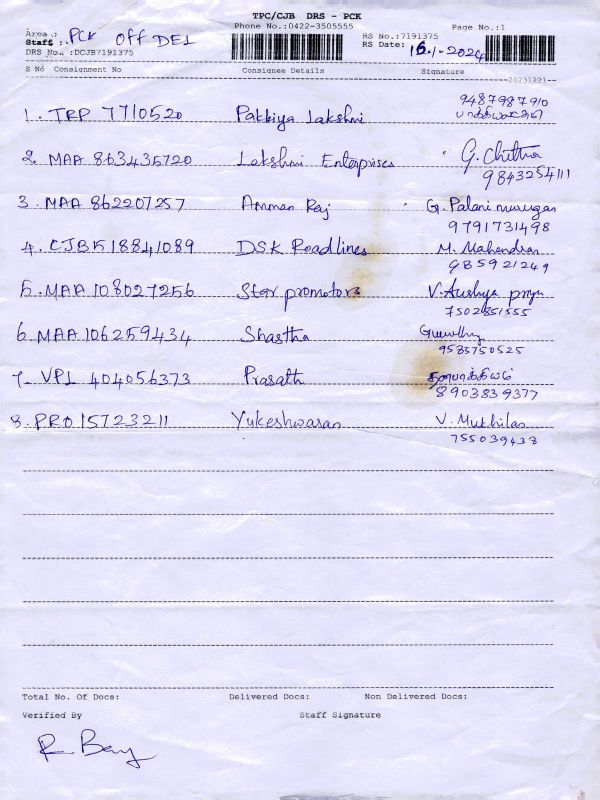 TPC/CJB DRS - PCK
Phone No.:0422-3505555 Page No.:1
Area : PCK OFF DEL
Staff :
RS No.:7191375
RS Date: 16.1.2024
DRS No.:DCJB7191375
S No Consignment No Consignee Details Signature
--20231221--
9487987910
1. TRP 7710520 Pakkiya Lakshmi
2. MAA 863435720 Lakshmi Enterprises G. Chitra
9843254111
3. MAA 862207257 Amman Raj G. Palani murugan
9791731498
4. CJB518841089 DSK Roadlines M. Mahendran
985921249
5. MAA 108027256 Star promotors V. priya
7502851555
6. MAA 106259434 Shastha
9585750525
7. VPL 404056373 Prasath
8903839377
8. PRO 15723211 Yukeshwaran V. Mukhilan
755039438
Total No. Of Docs: Delivered Docs: Non Delivered Docs:
Verified By Staff Signature